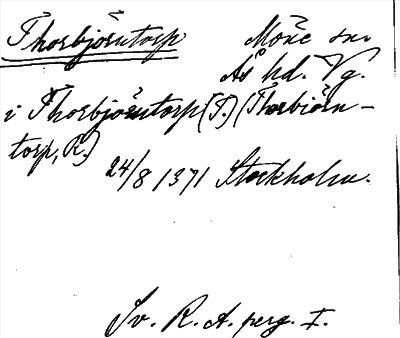 Thorbjörntorp Möne sn.
Ås hd. Vg.
i Thorbjörntorp (T.) (Thorbiörn-
torp, R.)
24/8 1371 Stockholm.
Sv. R. A. perg. I.